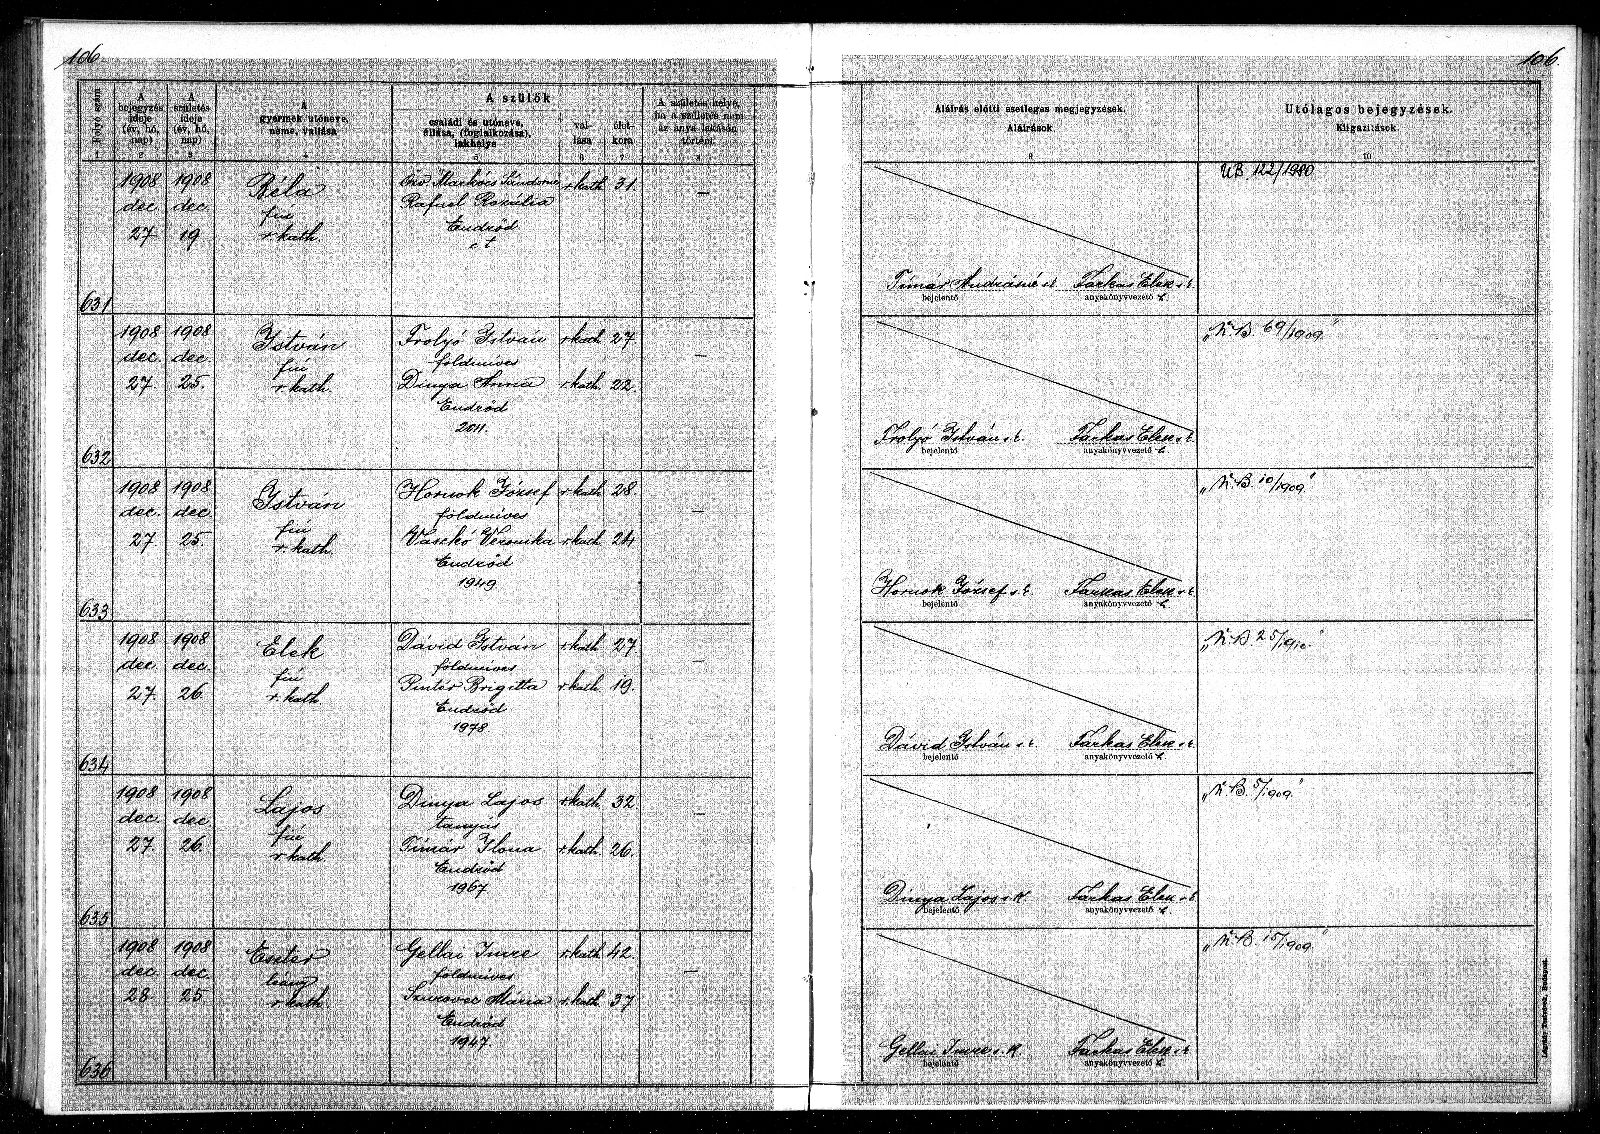 106
106.
Folyó szám
A bejegyzés ideje (év, hó, nap)
A születés ideje (év, hó, nap)
A gyermek utóneve, neme, vallása
A szülők
családi és utóneve, állása, (foglalkozása), lakhelye
vallása
életkora
A születés helye, ha a születés nem az anya lakásán történt
Aláírás előtti esetleges megjegyzések.
Aláírások.
Utólagos bejegyzések.
Kiigazítások.
1 2 3 4 5 6 7 8 9 10
631
1908 dec. 27
1908 dec. 19
Béla
fiú
r. kath.
Özv. Markócs Sándorné r. kath. 31.
Rafael Rozália
Endrőd
—
Tímár Andrásné
bejelentő
Farkas Elek
anyakönyvvezető
UB. 122/1980
632
1908 dec. 27.
1908 dec. 25.
István
fiú
r. kath.
Frolyó István r. kath. 27.
földmíves
Dinya Anna r. kath. 22.
Endrőd
2011.
—
Frolyó István
bejelentő
Farkas Elek
anyakönyvvezető
69/1909.
633
1908 dec. 27
1908 dec. 25.
István
fiú
r. kath.
Hornok József r. kath. 28.
földmíves
Vaskó Veronika r. kath. 24
Endrőd
1949
—
Hornok József
bejelentő
Farkas Elek
anyakönyvvezető
10/1909.
634
1908 dec. 27.
1908 dec. 26.
Elek
fiú
r. kath.
Dávid István r. kath. 27
földmíves
Pintér Brigitta r. kath. 19.
Endrőd
1978.
—
Dávid István
bejelentő
Farkas Elek
anyakönyvvezető
25/1910.
635
1908 dec. 27.
1908 dec. 26.
Lajos
fiú
r. kath.
Dinya Lajos r. kath. 32.
tanyás
Tímár Ilona r. kath. 26.
Endrőd
1967.
—
Dinya Lajos
bejelentő
Farkas Elek
anyakönyvvezető
5/1909.
636
1908 dec. 28
1908 dec. 25
Eszter
leány
r. kath.
Gellai Imre r. kath. 42.
földmíves
Szurovec Mária r. kath. 37
Endrőd
1947.
—
Gellai Imre
bejelentő
Farkas Elek
anyakönyvvezető
15/1909.